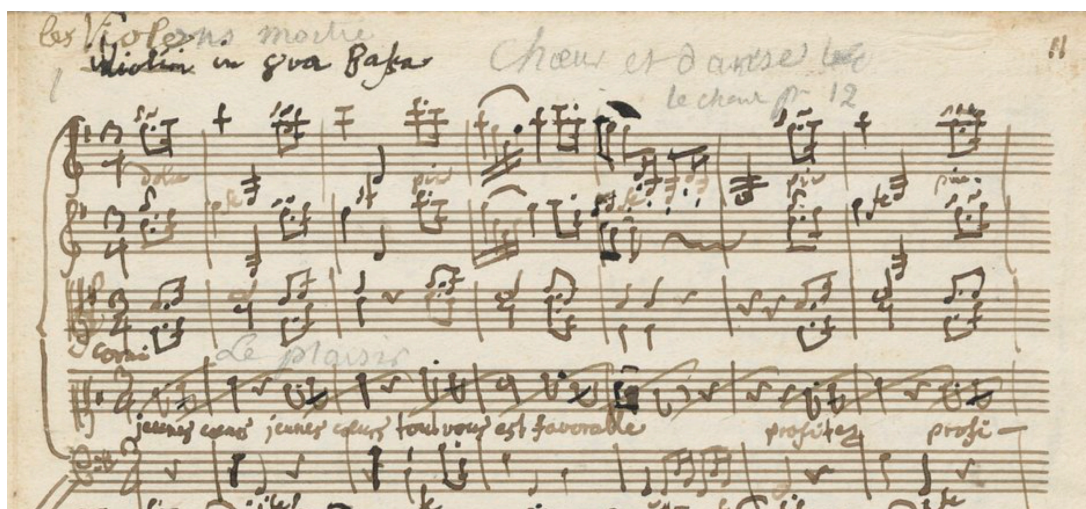 les Violons
Violin in 8va Bassa
Chœur et danse
11
le chœur pr 12
dolce
pia
pia
pia
fe
fe
fe
fe
Corni
Le plaisir
jeunes cœurs jeunes cœurs tout vous est favorable profitez profi-